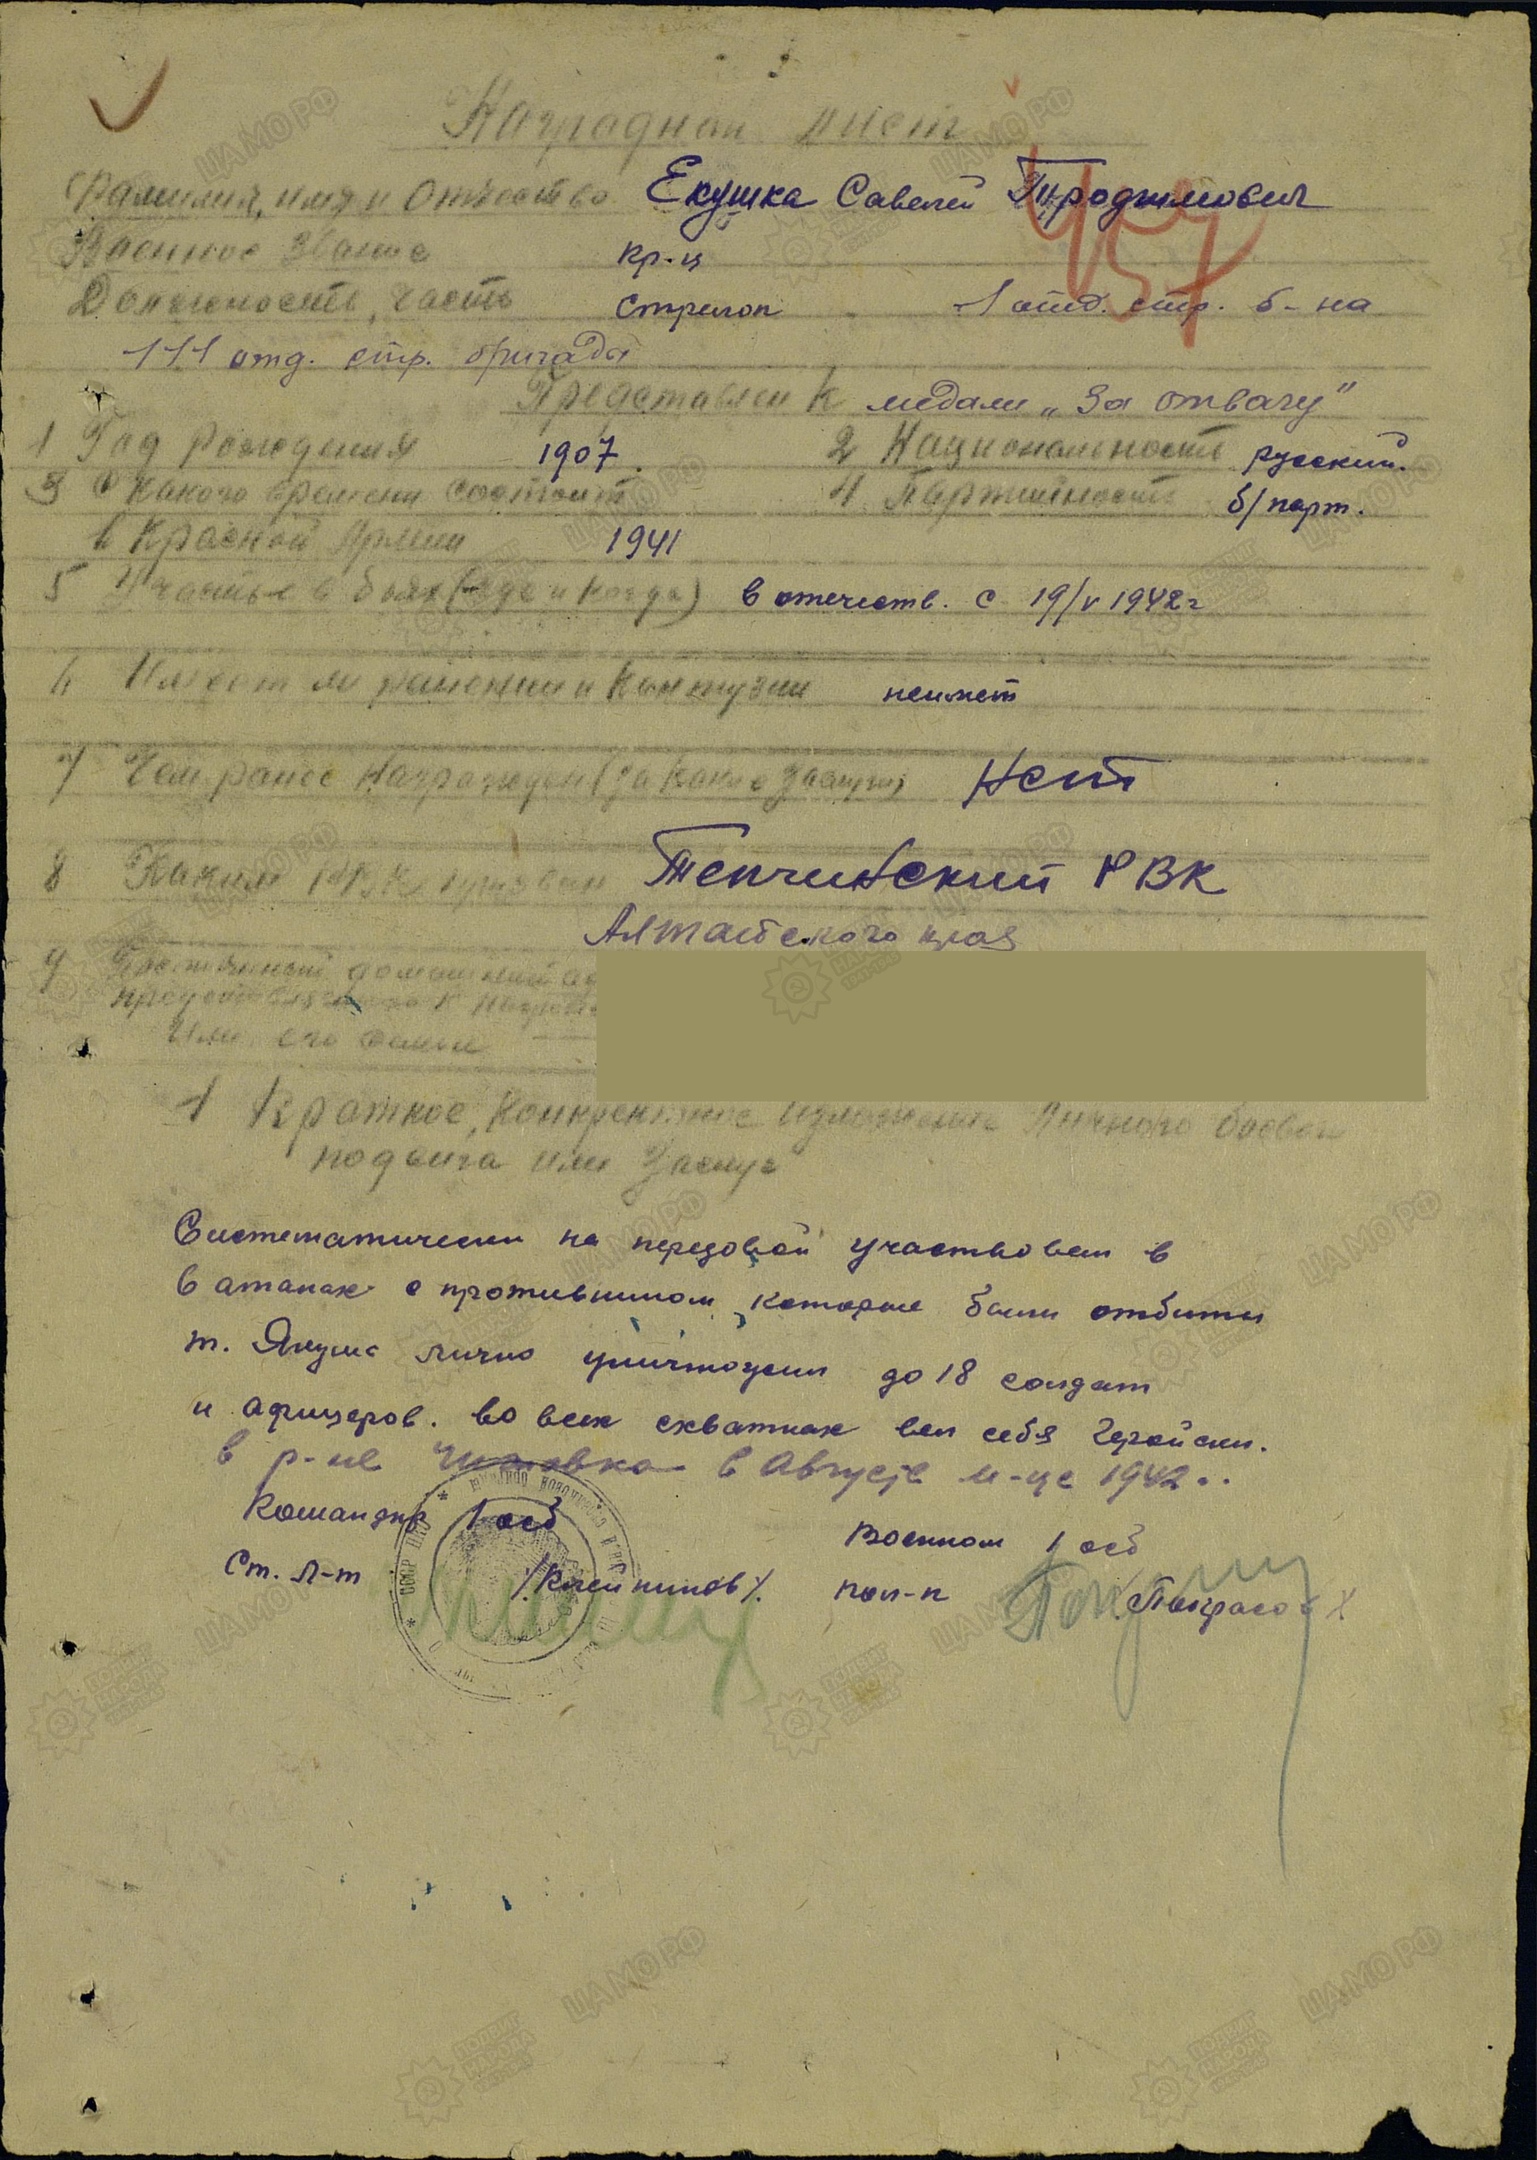 Наградной лист
Фамилия, имя и Отчество Екушка Савелий Трофимович
Военное звание кр-ц
457
Должность, часть стрелок 1 отд. стр. б-на
111 отд. стр. бригады
Представлен к медали „За отвагу"
1 Год рождения 1907. 2 Национальность русский.
3 С какого времени состоит 4 Партийность б/парт.
в Красной Армии 1941
5 Участье в боях (где и когда) в отечеств. с 19/V 1942г
6 Имеет ли ранения и контузии неимеет
7 Чем ранее награжден (за какие заслуги) Нет
8 Каким РВК призван РВК
Алтайского края
9 Постоянный домашний ад
представляемого к награжд
или его семьи
1 Краткое, конкретное изложение личного боевого
подвига или заслуг
Систематически на передовой участвовал в
в атаках с противником, которые были отбиты
т. Якуша лично уничтожил до 18 солдат
и афицеров. во всех схватках вел себя Геройски.
в р-не в Августе м-це 1942г.
Командир 1 осб Военком 1 осб
Ст. Л-т /Клейников/. пол-к